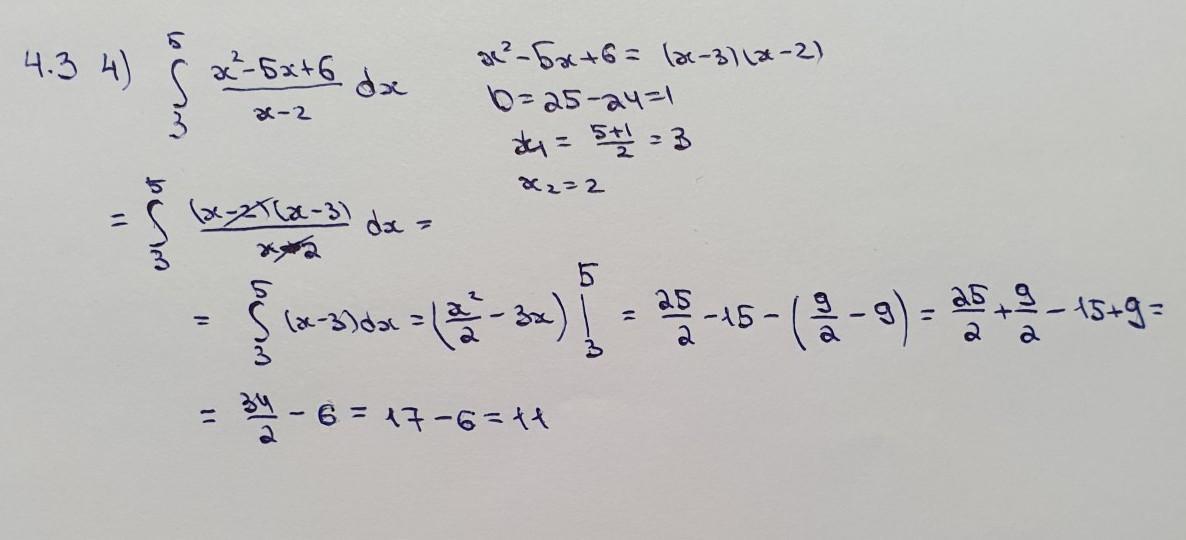 4.3 4) ∫₃⁵ (x²-5x+6)/(x-2) dx
x²-5x+6 = (x-3)(x-2)
D=25-24=1
x₁ = (5+1)/2 = 3
x₂=2
= ∫₃⁵ (x-2)(x-3)/(x-2) dx =
= ∫₃⁵ (x-3)dx = (x²/2 - 3x) |₃⁵ = 25/2 - 15 - (9/2 - 9) = 25/2 + 9/2 - 15+9=
= 34/2 - 6 = 17-6 = 11